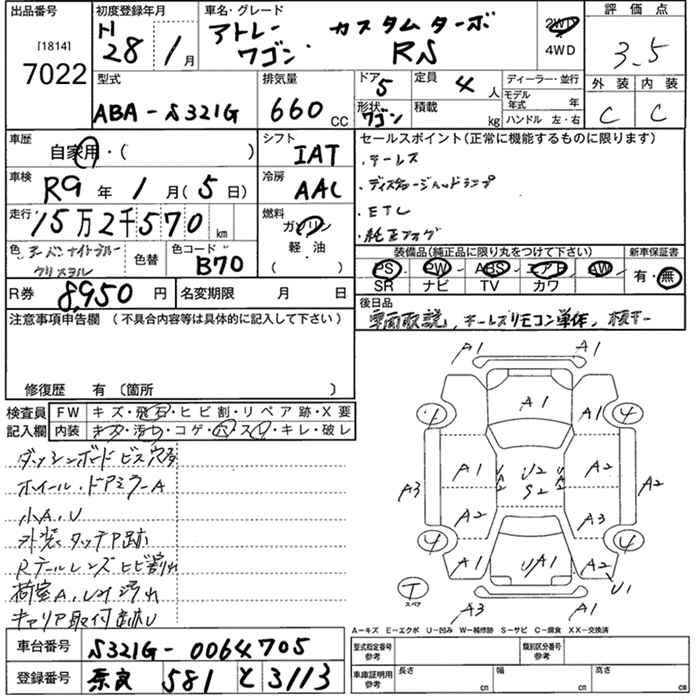 出品番号 [1814] 7022
初度登録年月 H28年 1月
車名・グレード アトレーワゴン カスタムターボ RS
2WD 4WD
評価点 3.5
外装 C 内装 C
型式 ABA-S321G
排気量 660 CC
ドア 5
形状 ワゴン
定員 4 人
積載 kg
ディーラー・並行
モデル年式 年
ハンドル 左・右
車歴 自家用・( )
シフト IAT
車検 R9年 1月(5日)
冷房 AAC
走行 15万2千570 km
燃料 ガソリン 軽・油 ( )
色 アーバンナイトブルークリスタル
色替
色コード B70
R券 8,950 円
名変期限 月 日
セールスポイント(正常に機能するものに限ります)
・キーレス
・ディスチャージヘッドランプ
・ETC
・純正フォグ
装備品(純正品に限り丸をつけて下さい)
PS PW ABS エアB AW
SR ナビ TV カワ
新車保証書 有・無
後日品
車両取説, キーレスリモコン単体,
注意事項申告欄 (不具合内容等は具体的に記入して下さい)
修復歴 有 〔箇所 〕
検査員記入欄
FW キズ・飛石・ヒビ割・リペア跡・X要
内装 キズ・汚れ・コゲ・穴・スレ・キレ・破レ
ダッシュボードビス穴多
ホイール・ドアミラーA
小A,U
外装タッチP跡
Rテールレンズヒビ割れ
荷室A,U, 汚れ
キャリア取付跡U
A1 A1
4 A1 4
A1 U2 A2
A3 S2 A2
A2 A3
4 4
A1 UA1 A2 U1
T スペア
A3 A1
A-キズ E-エクボ U-凹み W-補修跡 S-サビ C-腐食 XX-交換済
車台番号 S321G-0064705
登録番号 奈良 581 と 3113
型式指定番号 参考
類別区分番号 参考
車庫証明用 参考
長さ cm 幅 cm 高さ cm